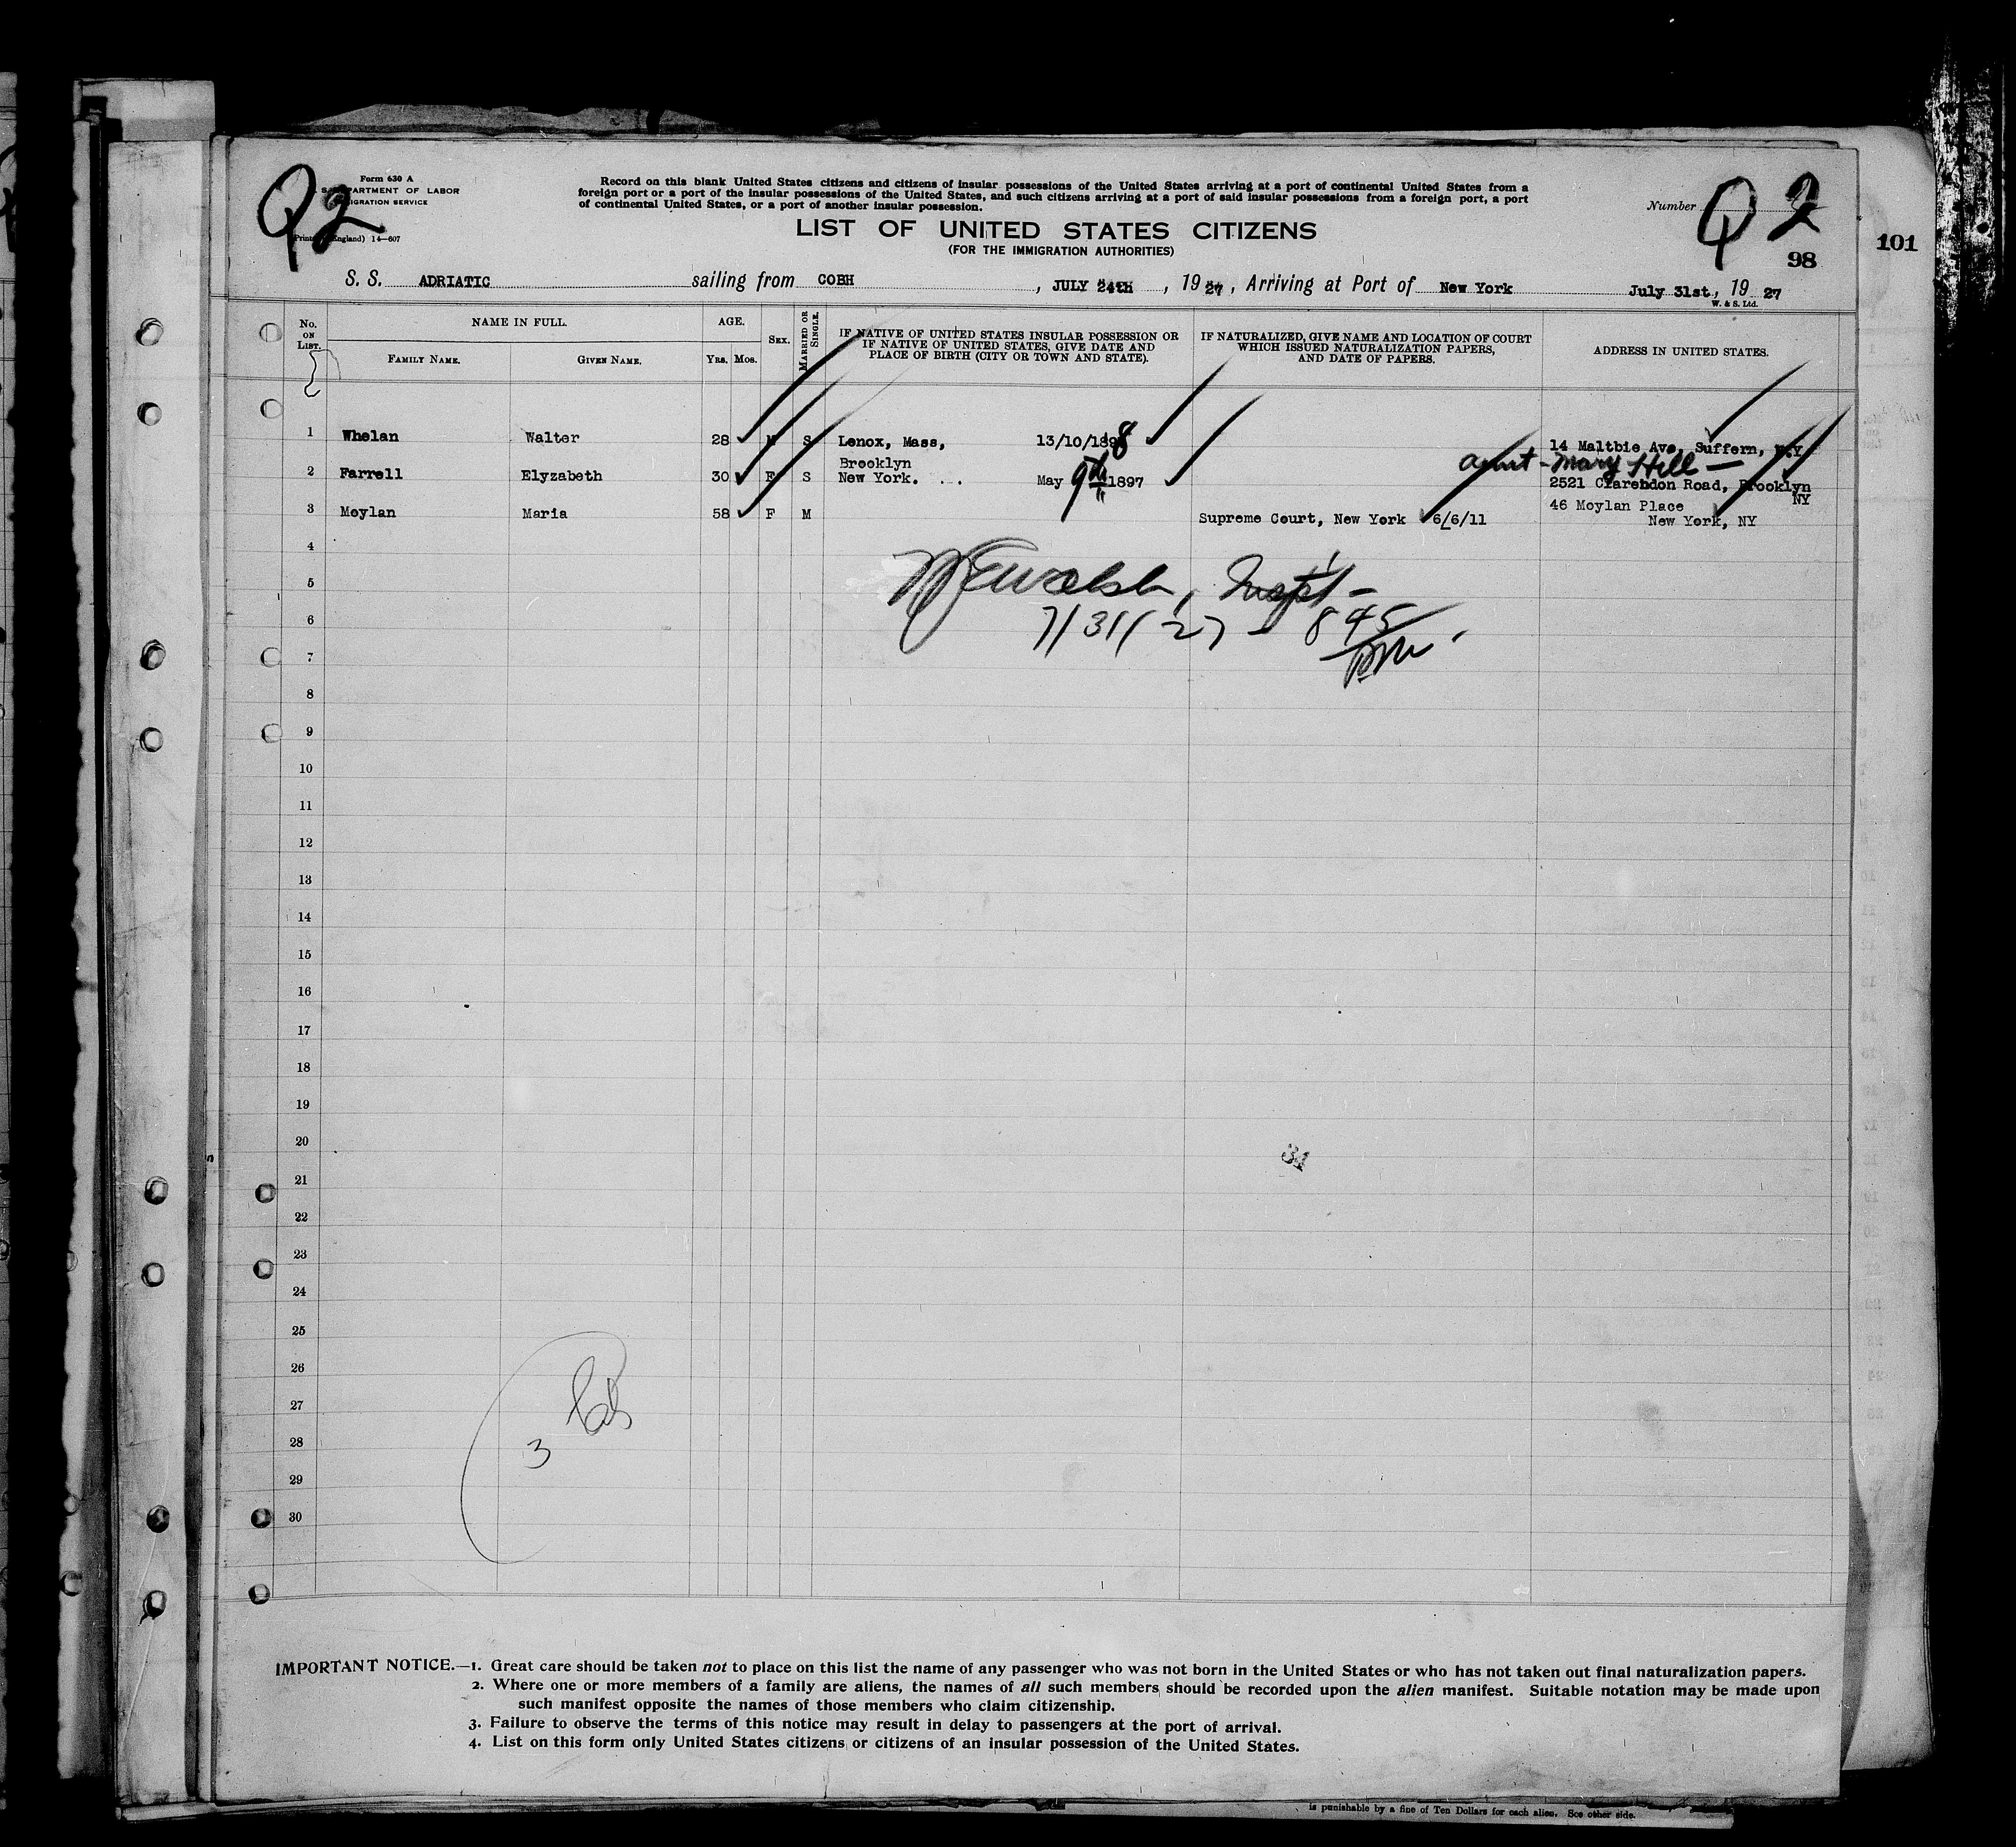 Q2
Form 630 A
S. DEPARTMENT OF LABOR
IGRATION SERVICE
(Printed England) 14—607
Record on this blank United States citizens and citizens of insular possessions of the United States arriving at a port of continental United States from a
foreign port or a port of the insular possessions of the United States, and such citizens arriving at a port of said insular possessions from a foreign port, a port
of continental United States, or a port of another insular possession.
Number Q 2
98
101
LIST OF UNITED STATES CITIZENS
(FOR THE IMMIGRATION AUTHORITIES)
S. S. ADRIATIC sailing from COBH , JULY 24th , 19 27, Arriving at Port of New York July 31st, 19 27
W. & S. Ltd.
No. ON LIST. NAME IN FULL. AGE. SEX. MARRIED OR SINGLE. IF NATIVE OF UNITED STATES INSULAR POSSESSION OR IF NATIVE OF UNITED STATES, GIVE DATE AND PLACE OF BIRTH (CITY OR TOWN AND STATE). IF NATURALIZED, GIVE NAME AND LOCATION OF COURT WHICH ISSUED NATURALIZATION PAPERS, AND DATE OF PAPERS. ADDRESS IN UNITED STATES.
FAMILY NAME. GIVEN NAME. YRS. MOS.
1 Whelan Walter 28 M S Lenox, Mass, 13/10/1898 14 Maltbie Ave, Suffern, N.Y
aunt - Mary Hill —
2 Farrell Elyzabeth 30 F S Brooklyn New York. ... May 9th 1897 2521 Clarendon Road, Brooklyn NY
3 Moylan Maria 58 F M Supreme Court, New York 6/6/11 46 Moylan Place New York, NY
4
5
Walsh, Insp't -
6
7/31/27 - 845
7
PM
8
9
10
11
12
13
14
15
16
17
18
19
20
31
21
22
23
24
25
26
27
28
3
29
30
IMPORTANT NOTICE.—1. Great care should be taken not to place on this list the name of any passenger who was not born in the United States or who has not taken out final naturalization papers.
2. Where one or more members of a family are aliens, the names of all such members should be recorded upon the alien manifest. Suitable notation may be made upon
such manifest opposite the names of those members who claim citizenship.
3. Failure to observe the terms of this notice may result in delay to passengers at the port of arrival.
4. List on this form only United States citizens or citizens of an insular possession of the United States.
is punishable by a fine of Ten Dollars for each alien. See other side.